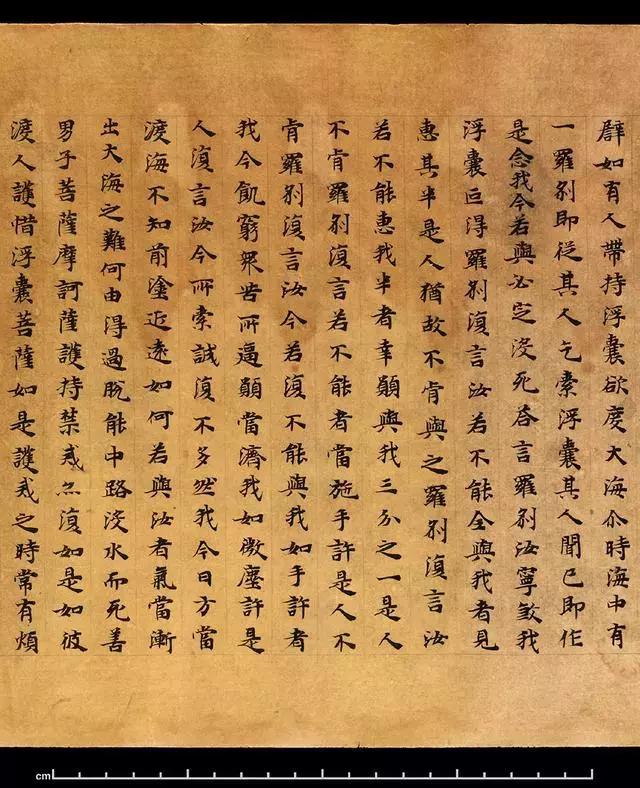 辟如有人帶持浮囊欲度大海尒時海中有
一羅剎即從其人乞索浮囊其人聞已即作
是念我今若與必定没死荅言羅剎汝寧煞我
浮囊叵得羅剎復言汝若不能全與我者見
惠其半是人猶故不肯與之羅剎復言汝
若不能惠我半者幸願與我三分之一是人
不肯羅剎復言若不能者當施手許是人不
肯羅剎復言汝今若復不能與我如手許者
我今飢窮衆苦所逼願當濟我如微塵許是
人復言汝今所索誠復不多然我今日方當
渡海不知前塗近遠如何若與汝者氣當漸
出大海之難何由得過脫能中路没水而死善
男子菩薩摩訶薩護持禁戒亦復如是如彼
渡人護惜浮囊菩薩如是護戒之時常有煩
cm